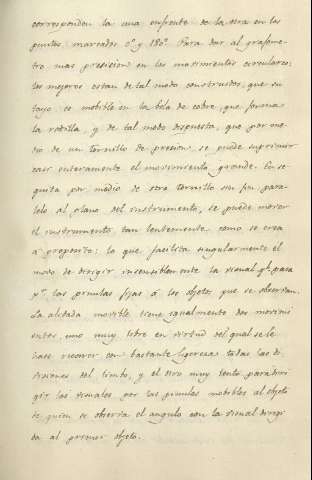 corresponden la una enfrente de la otra en los
puntos marcados 0º y 180º. Para dar al grafome-
tro mas presicion en los movimientos circulares;
los mejores estan de tal modo construidos, que su
es mobible en la bola de cobre, que forma
la rodilla, y de tal modo dispuesta, que por me-
dio de un tornillo de presion, se puede suprimir
casi enteramente el movimiento grande. En se-
guita por medio de otro tornillo sin fin para-
lelo al plano del instrumento, se puede mover
el instrumento, tan lentamente como se crea
a proposito: lo que facilita singularmente el
modo de dirigir insensiblemente la visual qe. pasa
pr. las pinulas fijas á los objetos que se observan.
La alidada movible tiene igualmente dos movimi-
entos, uno muy libre en virtud del qual se le
hase recorrer con bastante ligeresa todas las di-
visiones del limbo, y el otro muy lento para diri-
gir las visuales por las pinulas mobibles al objeto
de quien se observa el angulo con la visual dirigi-
da al primer objeto.